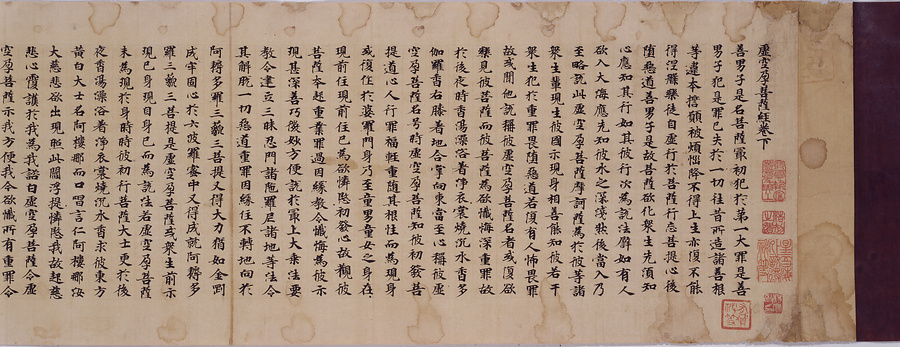 虛空孕菩薩經卷下
善男子是名菩薩最初犯於第一大罪是善
男子犯是罪已失於一切往昔所造諸善根
等違本擔願被煩惱降不得上生亦復不能
得涅槃樂徒自虛行於菩薩行忘菩提心後
墮惡道善男子是故菩薩欲化眾生先須知
心應知其行如其彼行次為說法譬如有人
欲入大海應先知彼水之深淺然後當入乃
至略說此虛空孕菩薩摩訶薩為於彼等諸
眾生輩現生彼國示現身相善能知彼若干
眾生犯於重罪畏墮惡道若復有人怖畏罪
故或聞他說稱彼虛空孕菩薩名者或復欲
樂見彼菩薩而彼菩薩為欲懺悔深重罪故
於後夜時香湯澡浴者淨衣裳燒沉水香多
伽羅香右膝著地合掌向東當至心稱彼虛
空孕菩薩名号時虛空孕菩薩知彼初發菩
提道心人行罪福輕重隨其根性而為現身
或復作於婆羅門身乃至童男童女之身在
現前住現前住已為欲憐愍初發心故觀彼
菩薩本起重業罪過因緣教令懺悔為彼示
現甚深善巧微妙方便說於最上大乘法要
教令建立三昧忍門諸陁羅尼諸地等法令
其解脫一切惡道重罪因緣住不轉地向於
阿耨多羅三藐三菩提又得大力猶如金剛
成牢固心於六波羅蜜中又得成就阿耨多
羅三藐三菩提是虛空孕菩薩或眾生前示
現己身現自身已而為說法若虛空孕菩薩
未為現於身時時彼初行菩薩大士更於後
夜香湯澡浴者淨衣裳燒沉水香求彼東方
黃白大士名阿樓那而口唱言仁阿樓那汝
大慈悲欲出現照此閻浮提憐愍我故起慈
悲心覆護於我為我諮白虛空孕菩薩令虛
空孕菩薩示我方便我今欲懺所有重罪令